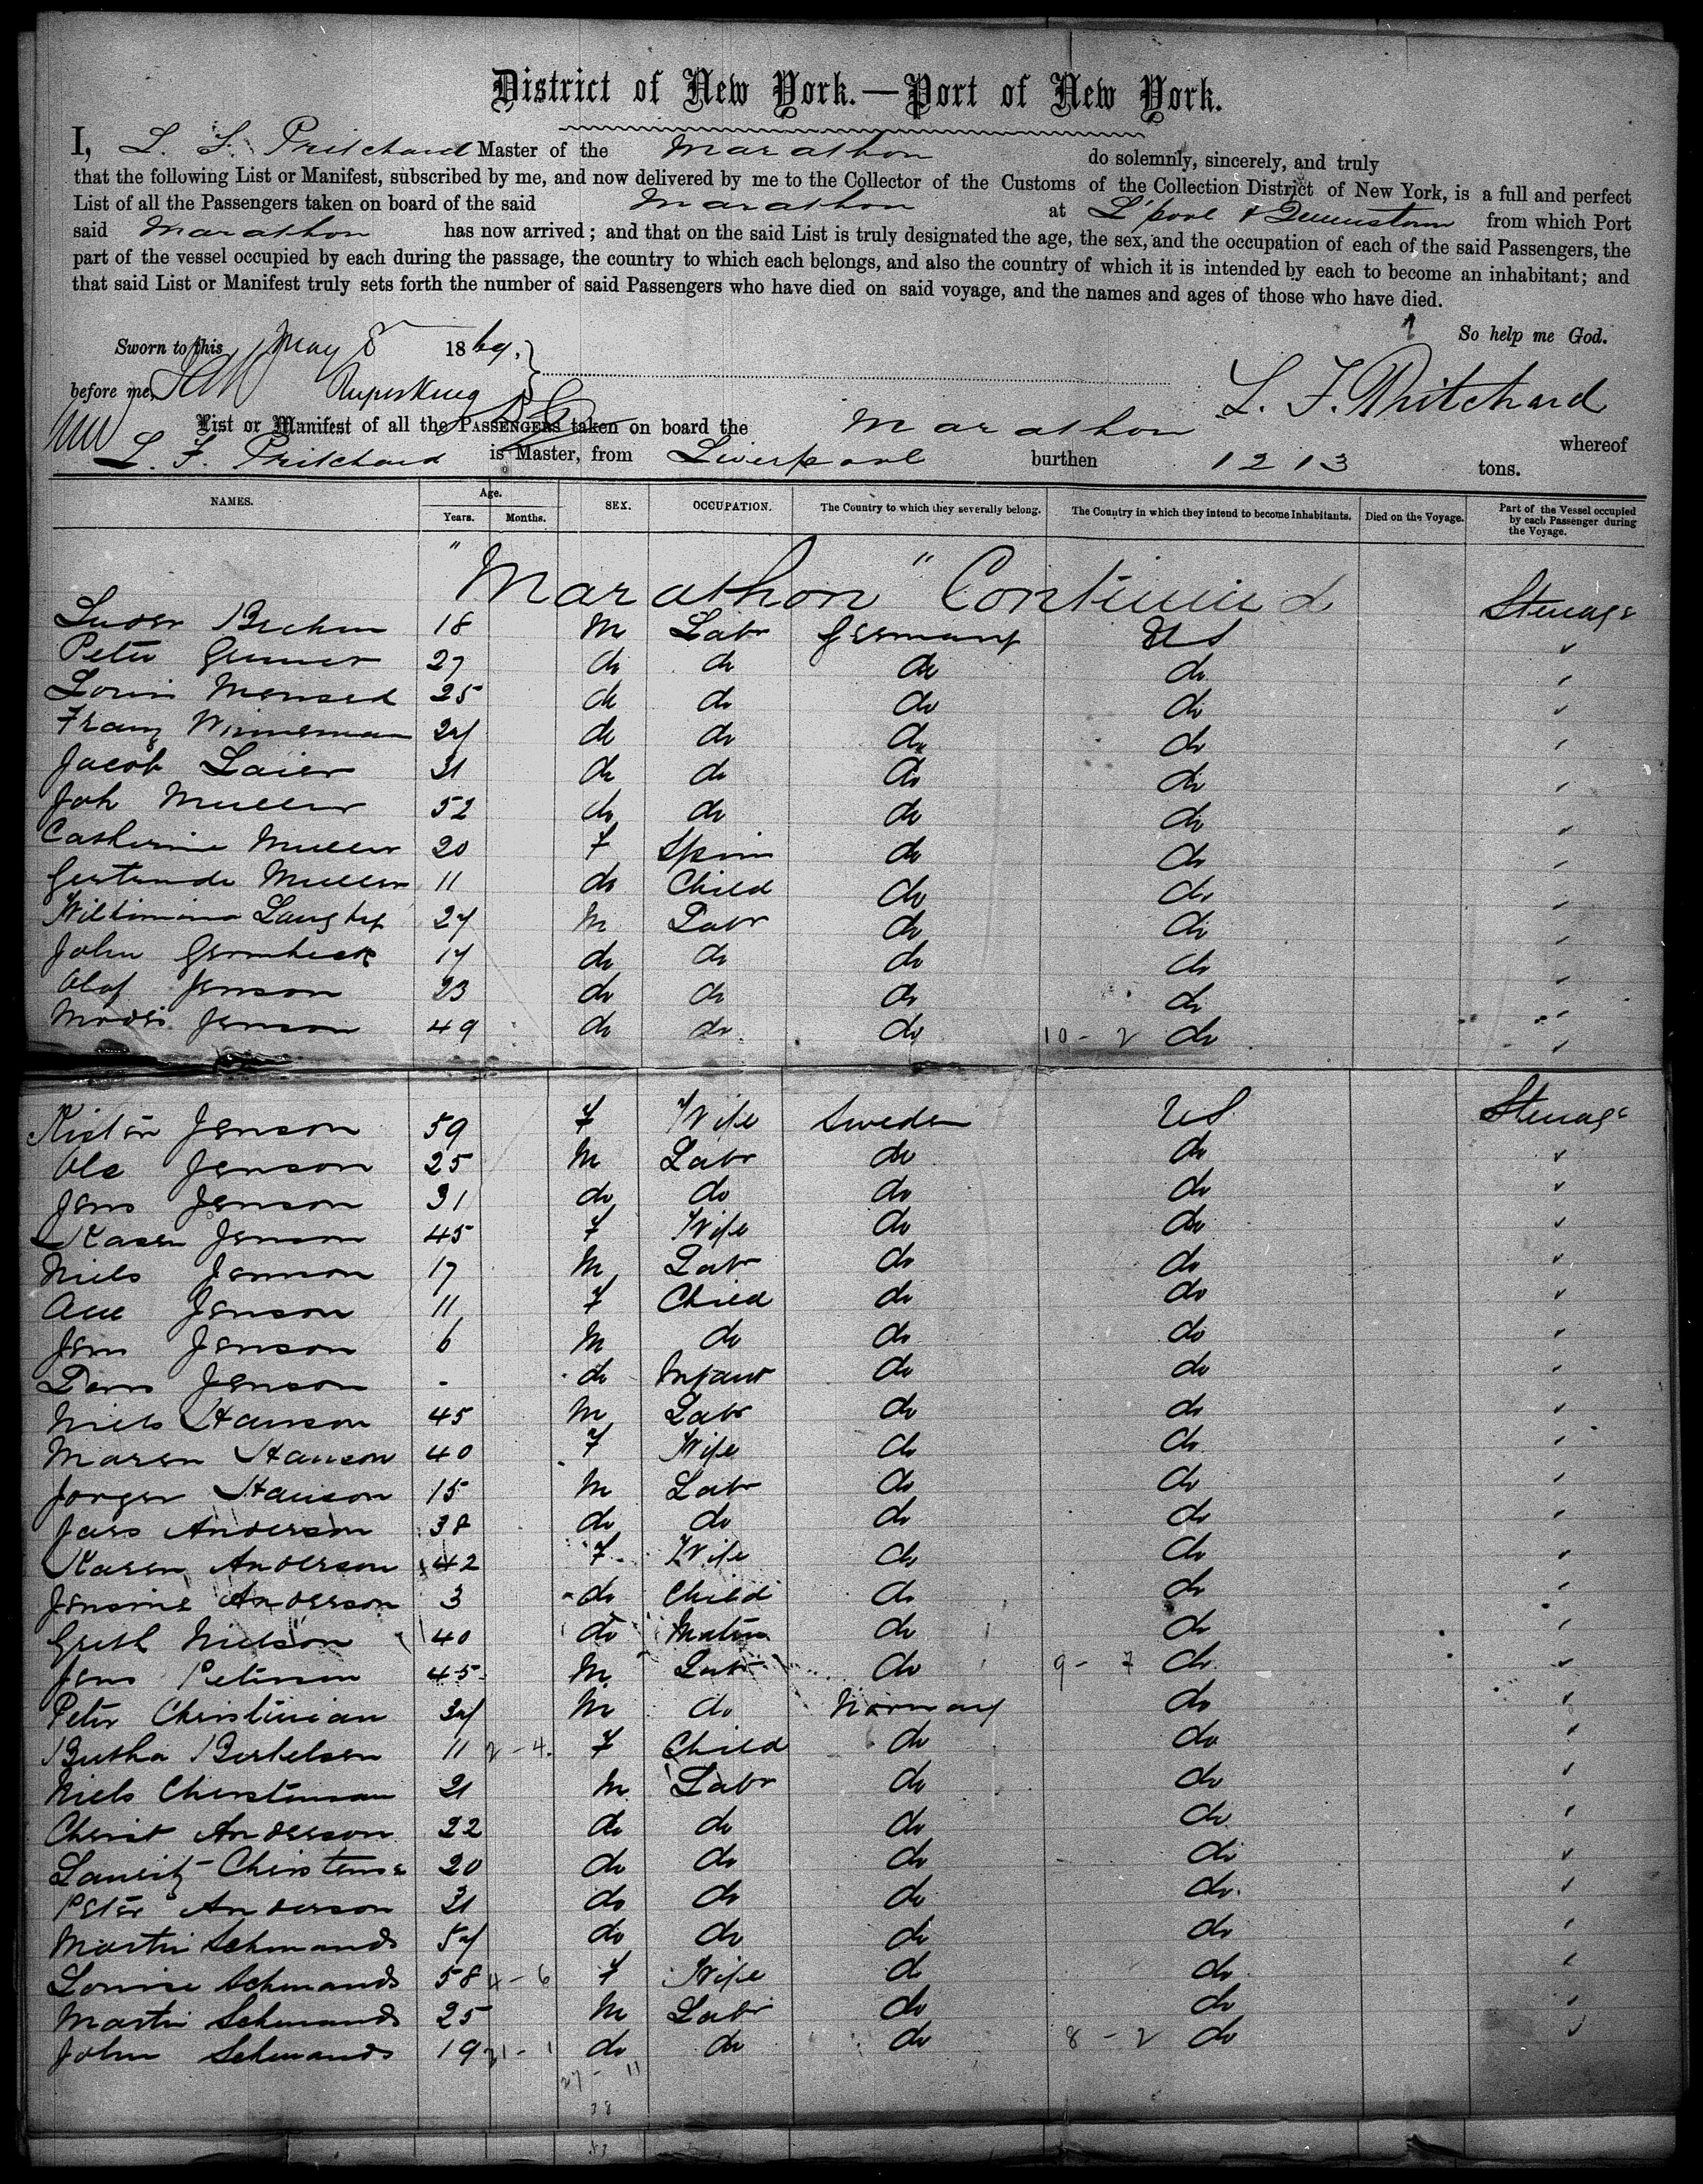 District of New York.—Port of New York.
I, L. F. Pritchard Master of the Marathon do solemnly, sincerely, and truly
that the following List or Manifest, subscribed by me, and now delivered by me to the Collector of the Customs of the Collection District of New York, is a full and perfect
List of all the Passengers taken on board of the said Marathon at L'pool & Queenstown from which Port
said Marathon has now arrived; and that on the said List is truly designated the age, the sex, and the occupation of each of the said Passengers, the
part of the vessel occupied by each during the passage, the country to which each belongs, and also the country of which it is intended by each to become an inhabitant; and
that said List or Manifest truly sets forth the number of said Passengers who have died on said voyage, and the names and ages of those who have died.
So help me God.
Sworn to this May 8 1869.
before me, L. F. Pritchard
List or Manifest of all the PASSENGERS taken on board the Marathon whereof
L. F. Pritchard is Master, from Liverpool burthen 1213 tons.
NAMES. Age. Years. Months. SEX. OCCUPATION. The Country to which they severally belong. The Country in which they intend to become Inhabitants. Died on the Voyage. Part of the Vessel occupied by each Passenger during the Voyage.
"Marathon" Continued
18 M Labr Germany US Steerage
Peter 27 do do do do
25 do do do do
Franz Winneman 24 do do do do
Jacob Laier 31 do do do do
Joh Muller 52 do do do do
Catherine Muller 20 F Spin do do
Gertrude Muller 11 do Child do do
27 M Labr do do
John 17 do do do do
Olof Jenson 23 do do do do
Jenson 49 do do do 10 - 2 do
Kisten Jenson 59 F Wife Sweden US Steerage
Ole Jenson 25 M Labr do do
Jens Jenson 31 do do do do
Karen Jenson 45 F Wife do do
Niels Jenson 17 M Labr do do
Ane Jenson 11 F Child do do
Jens Jenson 6 M do do do
Jenson - do Infant do do
Niels Hanson 45 M Labr do do
Maren Hanson 40 F Wife do do
Jorgen Hanson 15 M Labr do do
Jars Anderson 38 do do do do
Karen Anderson 42 F Wife do do
Jensine Anderson 3 do Child do do
Nielson 40 do Matrn do do
Jens Peterson 45 M Labr do 9 - 7 do
Peter Christinian 34 M do Norway do
Bertha Bertelsen 11 2 - 4 F Child do do
Niels Christensan 21 M Labr do do
Christ Anderson 22 do do do do
Lauritz Christense 20 do do do do
Peter Anderson 31 do do do do
Martin Schmands 54 do do do do
Louise Schmands 58 4 - 6 F Wife do do
Martin Schmands 25 M Labr do do
John Schmands 19 21 - 1 do do do 8 - 2 do
27 - 11
38